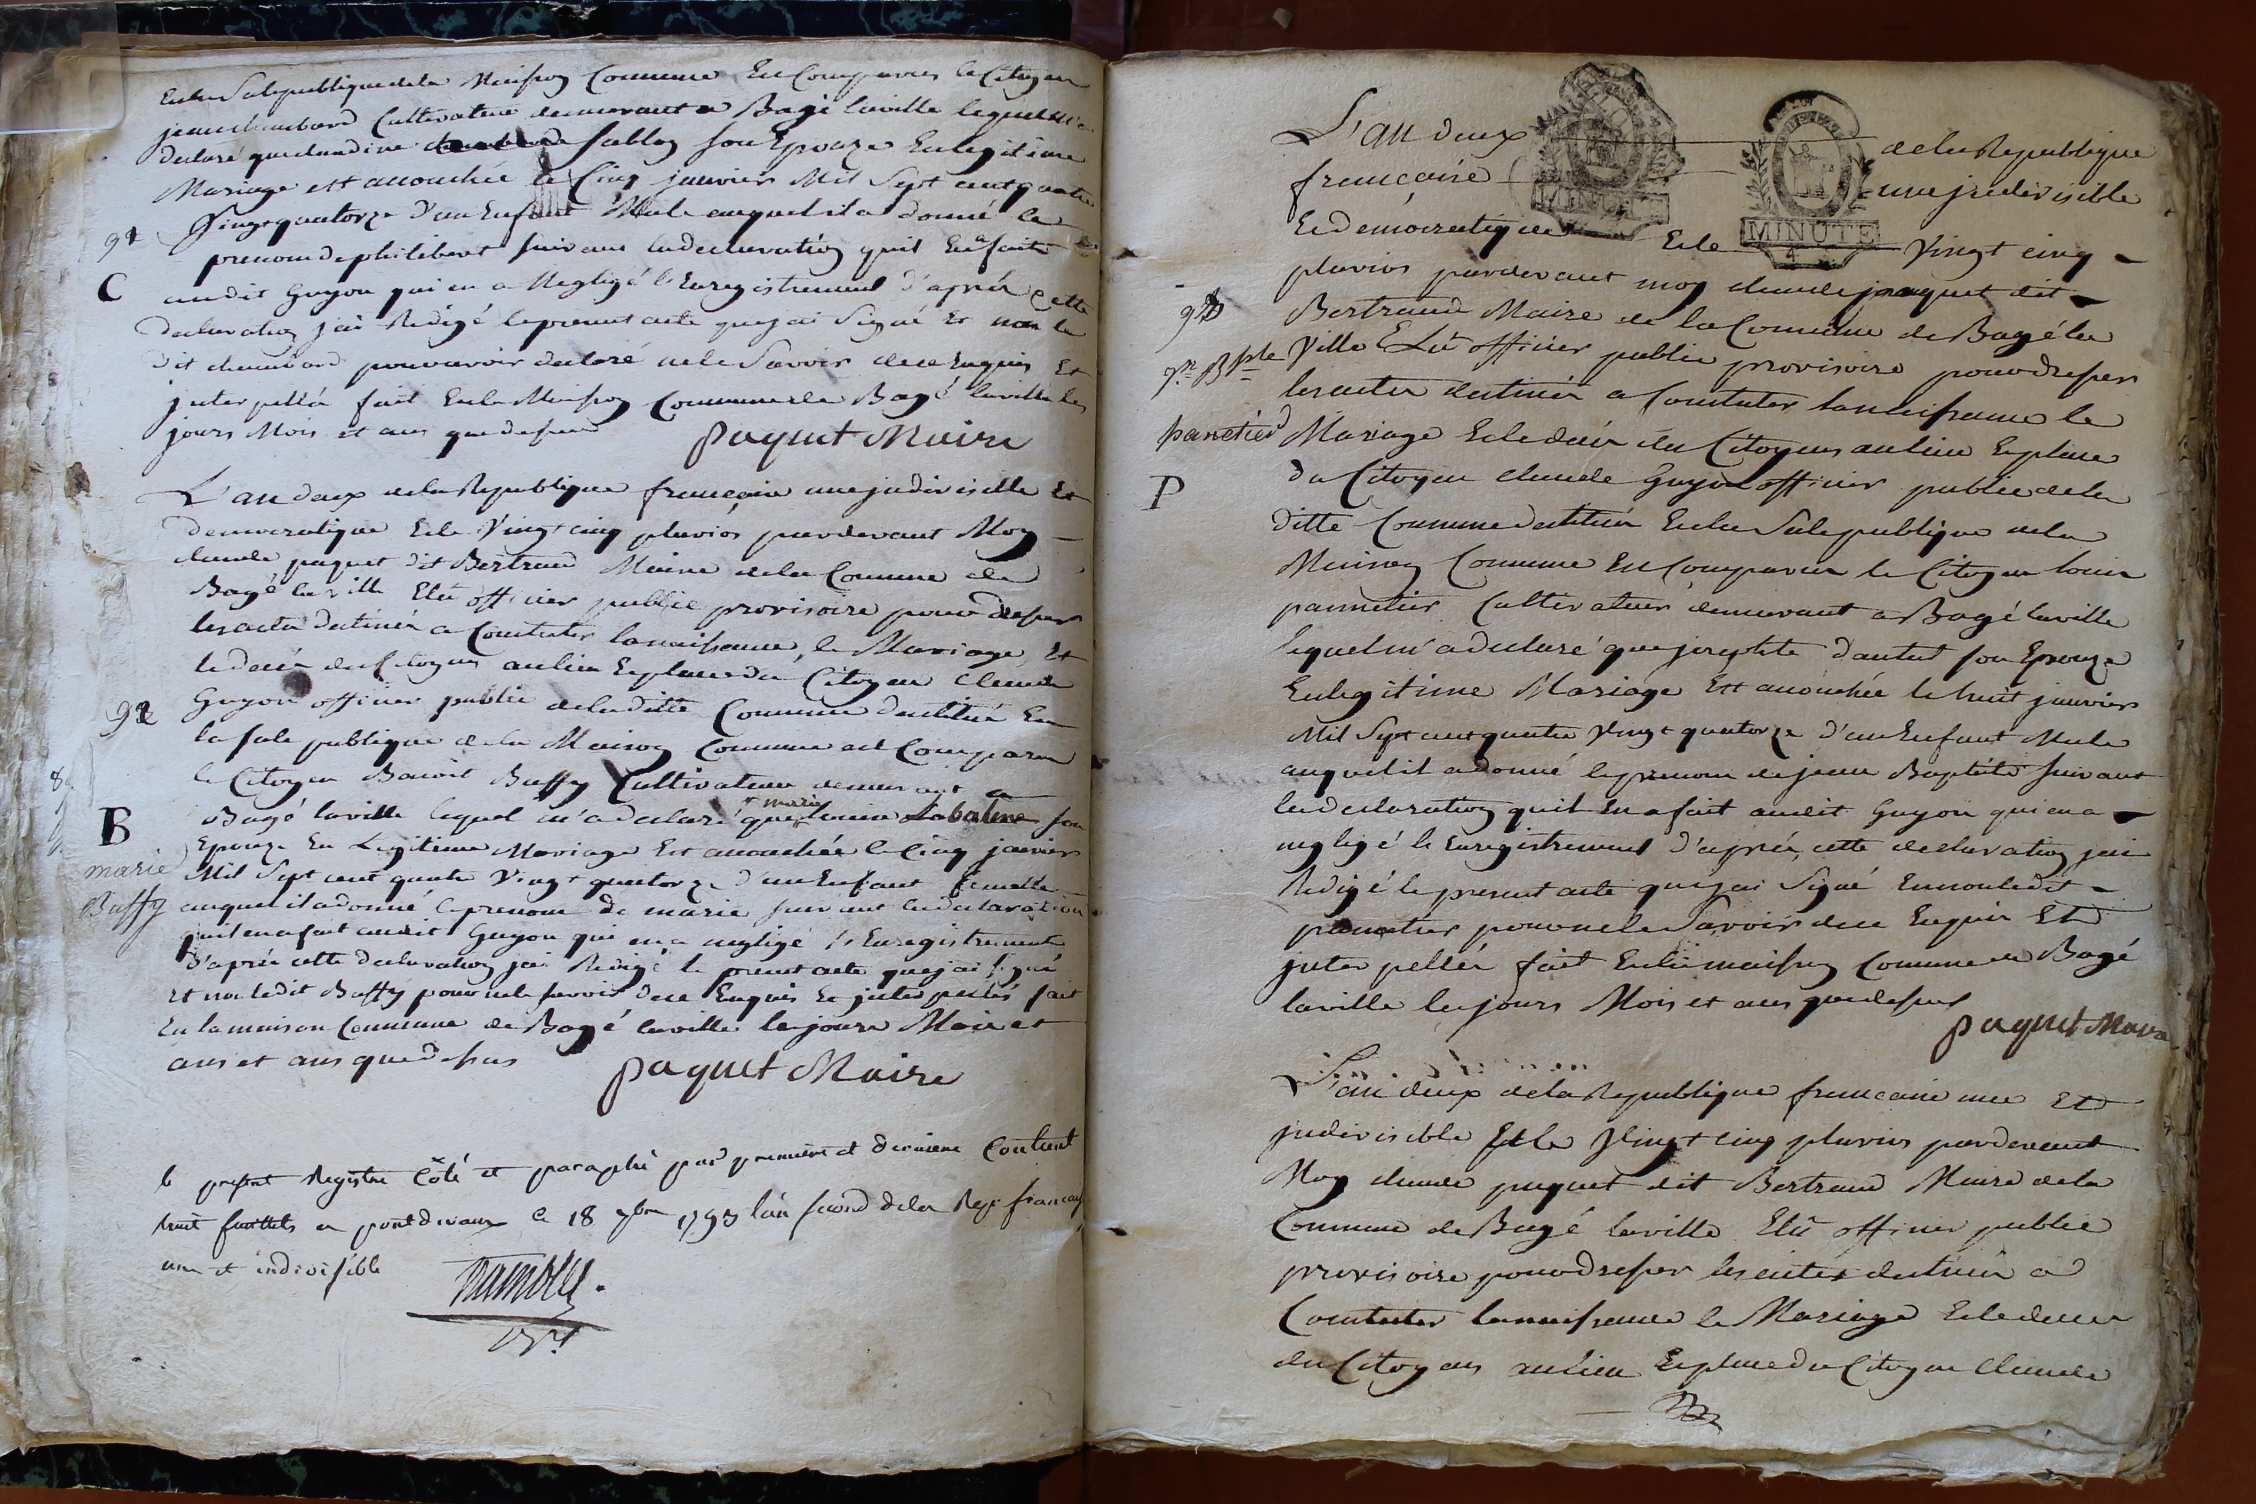 En la Sale publique de la Maison Commune Est Comparus le Citoyen
jean chambard Cultivateur demeurant a Bagé laville lequel m'a
declaré que claudine Sablon son Epouze En legitime
Mariage est accouchée le Cinq janvier Mil Sept cent quatre
Vingt quatorze d'un Enfant Male auquel il a donné le
prenom de philibert suivant la declaration quil En a fait
audit Guyon qui en a Negligé l'Enregistrement d'aprés cette
declaration jai Redigé le present acte que jai Signé Et non le
dit chambard pour avoir declaré ne le Savoir de ce Enquis Et
jnterpellá fait En la Maison Commune de Bagé laville les
jours Mois et ans que dessus
paquet Maire
C
L'an deux de la Republique francaise une jndivisille Et
democratique Et le Vingt cinq pluvios pardevant Moy
claude paquet dit Bertrand Maire de la Commune de
Bagé la ville Elû officier public provisoire pour dresser
les actes destinés a Constater la naissance, le Mariage, Et
le decés des Citoyens au lieu En place du Citoyen Claude
Guyon officier public de la ditte Commune destitué En
la sale publique de la Maison Commune est Comparu
le Citoyen Benoit Buffy Cultivateur demeurant a
Bagé laville lequel m'a declaré que marie Labalme son
Epouze En Legitime Mariage Est accouchée le Cinq janvier
Mil Sept cent quatre Vingt quatorze d'un Enfant femelle
auquel il a donné le prenom de marie suivant la declaration
quil en a fait audit Guyon qui en a négligé l'Enregistrement
d'aprés cette declaration jai Redigé le present acte que jai signé
Et non ledit Buffy pour ne le savoir de ce Enquis Et jnterpellés fait
En la maison Commune de Bagé laville les jours Mois et
ans et ans que dessus
paquet Maire
B
marie
Buffy
le present Registre Côté et paraphé par premiere et derniere Contient
huit feuillets a pontdevaux le 18 7bre 1793 l'an second de la Rep francaise
une et indivisible
L'an deux de la Republique
francaise une jndivisible
Et democratique Et le Vingt cinq
MINUTE
MINUTE
pluvios pardevant moy claude paquet dit
Bertrand Maire de la Commune de Bagé la
Ville Elû officier public provisoire pour dresser
les actes destinés a Constater la naissance le
Mariage Et le decés des Citoyens au lieu En place
du Citoyen claude Guyon officier public de la
ditte Commune destitué En la Sale publique de la
Maison Commune Est Comparus le Citoyen louis
pannetier Cultivateur demeurant a Bagé laville
lequel m'a declaré que josephte dautut son Epouze
En legitime Mariage Est accouchée le huit janvier
Mil Sept cent quatre Vingt quatorze d'un Enfant Male
auquel il a donné le prenom de jean Baptiste suivant
la declaration quil En a fait audit Guyon qui en a
negligé l'Enregistrement d'aprés cette declaration jai
Redigé le present acte que jai Signé Et non ledit
pannetier pour ne le Savoir de ce Enquis Et
jnterpellés fait En la maison Commune de Bagé
laville les jours Mois et ans que dessus
paquet Maire
jn Bpte
panetier
P
L'an deux de la Republique francaise une Et
jndivisible Et le Vingt cinq pluvios pardevant
Moy claude paquet dit Bertrand Maire de la
Commune de Bagé laville Elû officier public
provisoire pour dresser les actes destinés a
Constater la naissance le Mariage Et le decés
des Citoyens au lieu En place du Citoyen Claude